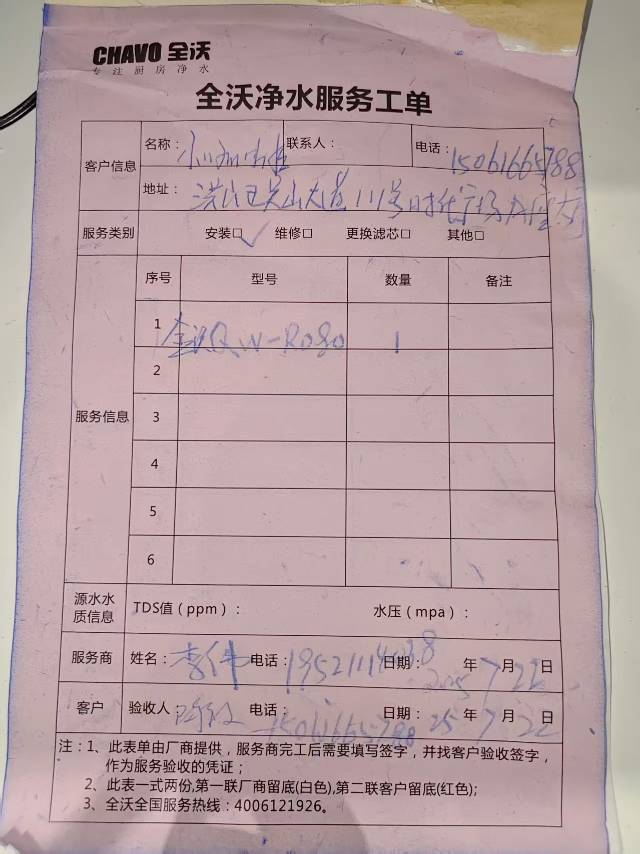 CHAVO 全沃
专注厨房净水
全沃净水服务工单
客户信息
名称： 联系人： 电话：15061665788
地址： 大道111号时代广场
服务类别 安装□✓ 维修□ 更换滤芯□ 其他□
服务信息
序号 型号 数量 备注
1 全沃QW-RO80 1
2
3
4
5
6
源水水质信息 TDS值（ppm）： 水压（mpa）：
服务商 姓名：李伟 电话： 日期：2025年7月22日
客户 验收人： 电话：15061665788 日期：25年7月22日
注：1、此表单由厂商提供，服务商完工后需要填写签字，并找客户验收签字，
作为服务验收的凭证；
2、此表一式两份,第一联厂商留底(白色),第二联客户留底(红色);
3、全沃全国服务热线：4006121926。